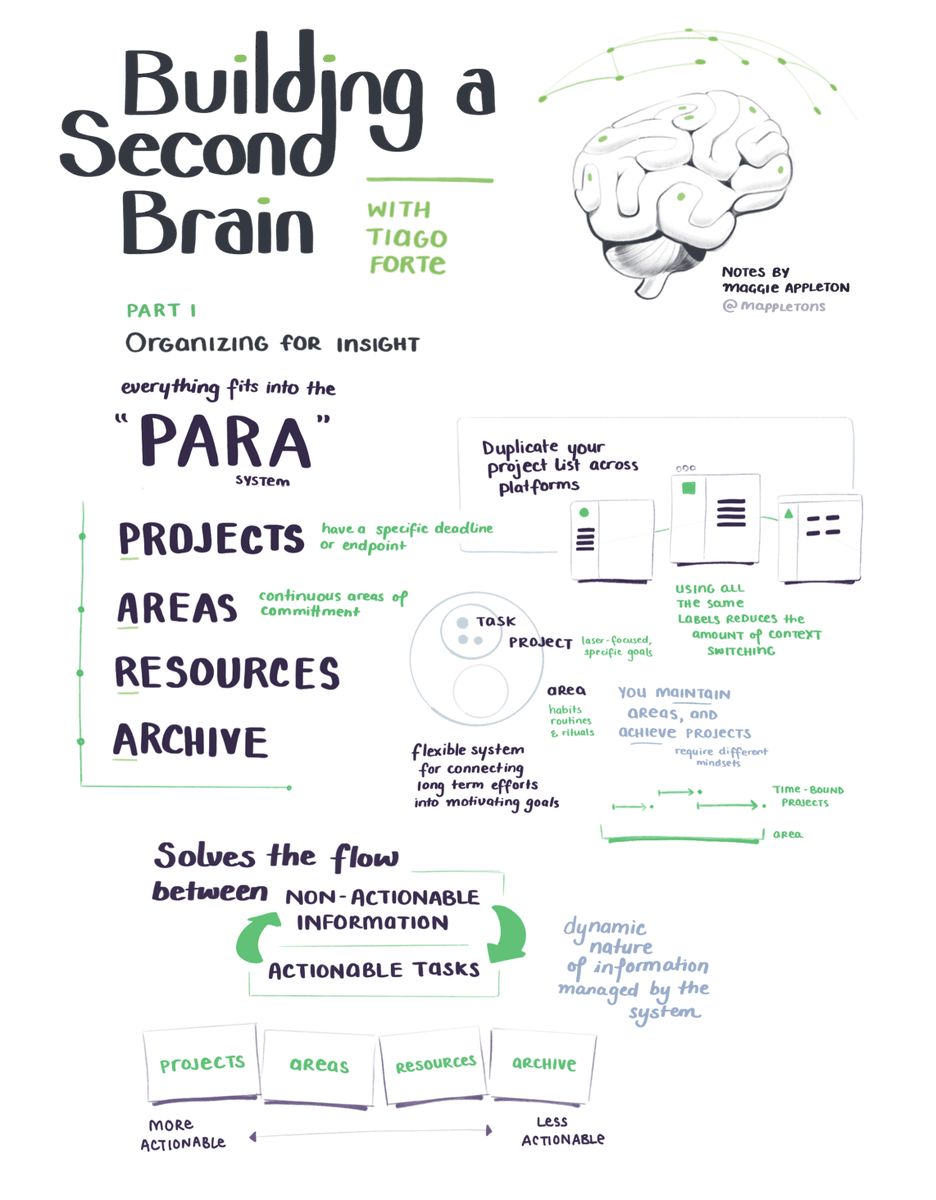 Building a
Second
Brain
WITH
TIAGO
FORTE
NOTES BY
MAGGIE APPLETON
@MAPPLETONS
PART 1
ORGANIZING FOR INSIGHT
everything fits into the
"PARA"
SYSTEM
PROJECTS
have a specific deadline
or endpoint
AREAS
continuous areas of
committment
RESOURCES
ARCHIVE
Duplicate your
project list across
platforms
USING ALL
THE SAME
LABELS REDUCES THE
AMOUNT OF CONTEXT
SWITCHING
TASK
PROJECT
laser-focused,
specific goals
AREA
habits
routines
& rituals
flexible system
for connecting
long term efforts
into motivating goals
YOU MAINTAIN
AREAS, AND
ACHIEVE PROJECTS
require different
mindsets
TIME-BOUND
PROJECTS
AREA
Solves the flow
between
NON-ACTIONABLE
INFORMATION
ACTIONABLE TASKS
dynamic
nature
of information
managed by the
system
PROJECTS
AREAS
RESOURCES
ARCHIVE
MORE
ACTIONABLE
LESS
ACTIONABLE